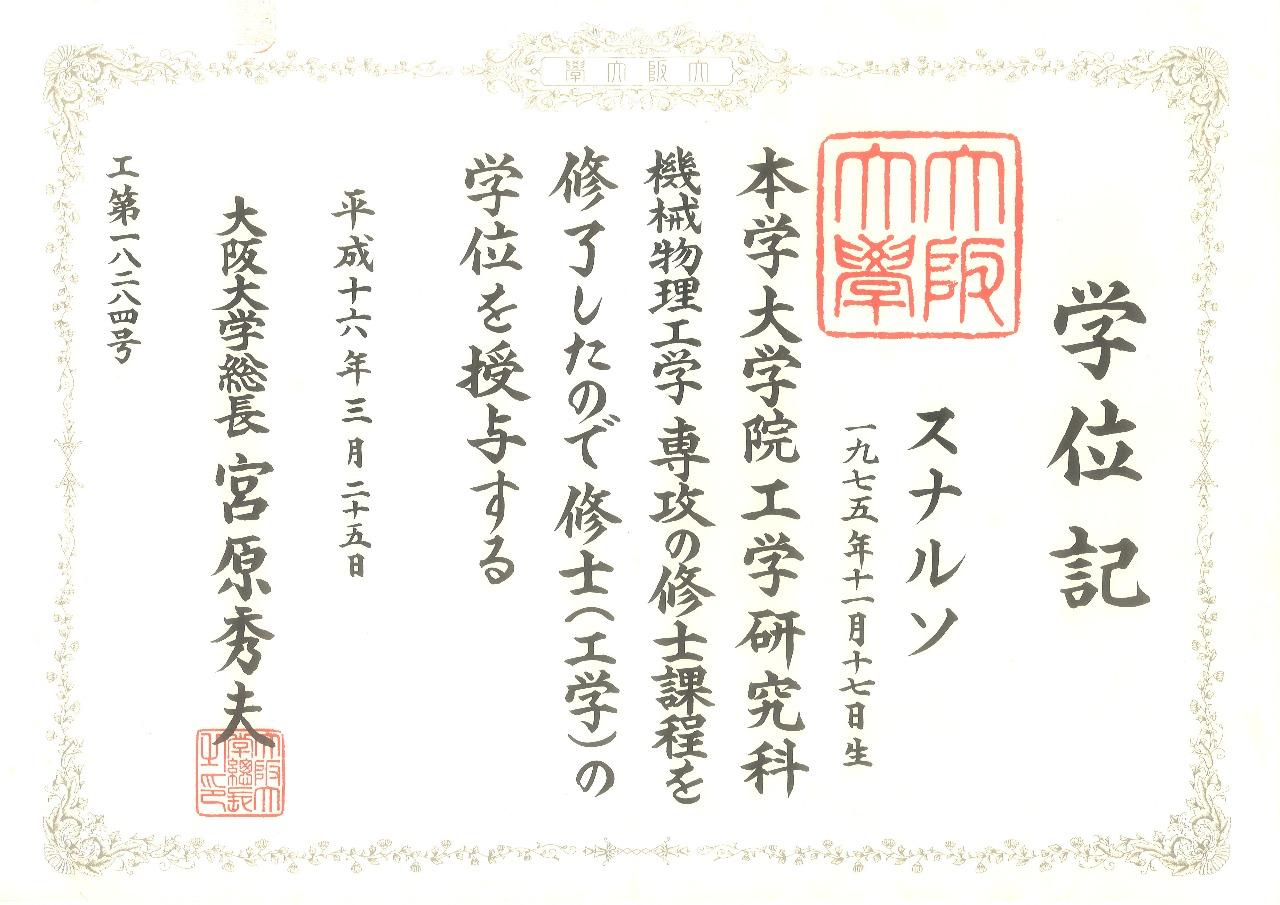 大阪大學
学位記
大阪大學
スナルソ
一九七五年十一月十七日生
本学大学院工学研究科
機械物理工学専攻の修士課程を
修了したので修士（工学）の
学位を授与する
平成十六年三月二十五日
大阪大学総長 宮原秀夫
大阪大學總長之印
工第一八二八四号